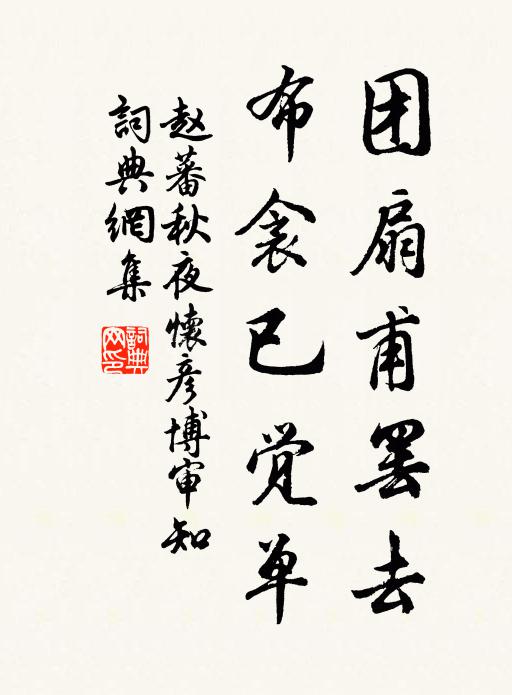 团扇甫罢去
布衾已觉单
赵蕃秋夜懷彦博审知
詞典網集
詞典網印